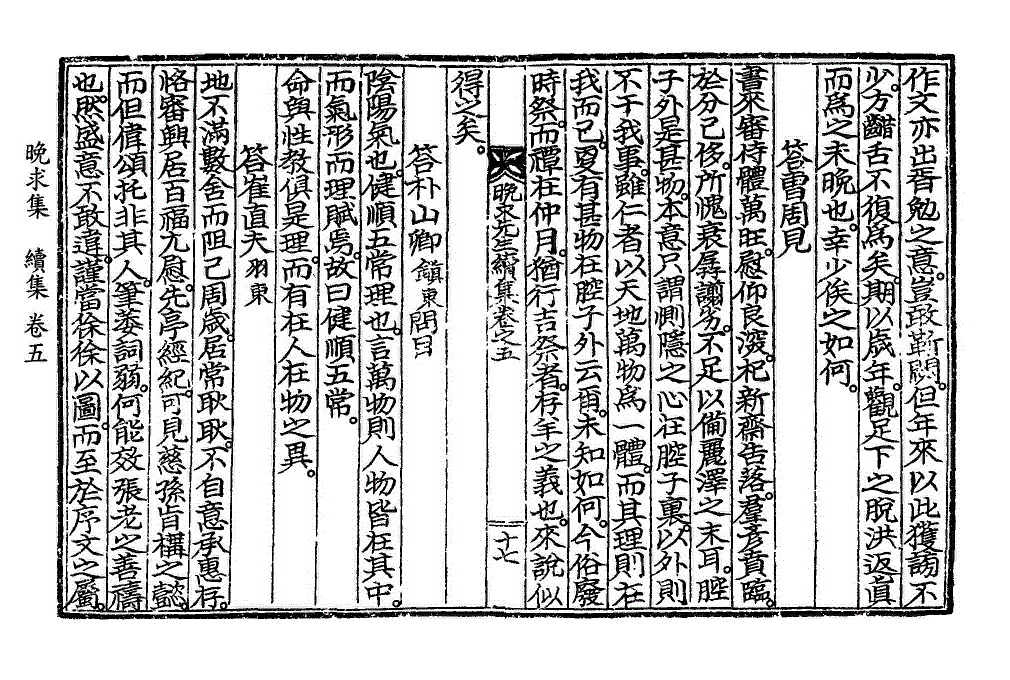 作文亦出晋勉之意。豈敢靳閟。但年來以此獲謗不
少。方齰舌不復爲矣。期以歲年。觀足下之脫洪返眞
而爲之未晩也。幸少俟之如何。
答曺周見
書來審侍體萬旺。慰仰良深。祀新齋告落。羣彦賁臨。
於分已侈。所愧衰孱謭劣。不足以備麗澤之末耳。腔
子外是甚物。本意只謂惻隱之心在腔子裏。以外則
不干我事。雖仁者以天地萬物爲一體。而其理則在
我而已。更有甚物在腔子外云爾。未知如何。今俗廢
時祭。而禫在仲月。猶行吉祭者。存羊之義也。來說似
晩求先生續集卷之五
十七
得之矣。
答朴山卿 鎭東 問目
陰陽氣也。健順五常理也。言萬物則人物皆在其中。
而氣形而理賦焉。故曰健順五常。
命與性敎俱是理。而有在人在物之異。
答崔直夫 羽東
地不滿數舍而阻已周歲。居常耿耿。不自意承惠存。
恪審興居百福。亢慰。先亭經紀。可見慈孫肯構之懿。
而但偉頌托非其人。筆萎詞弱。何能效張老之善禱
也。然盛意不敢違。謹當徐徐以圖。而至於序文之屬。
晩求集 續集 卷五